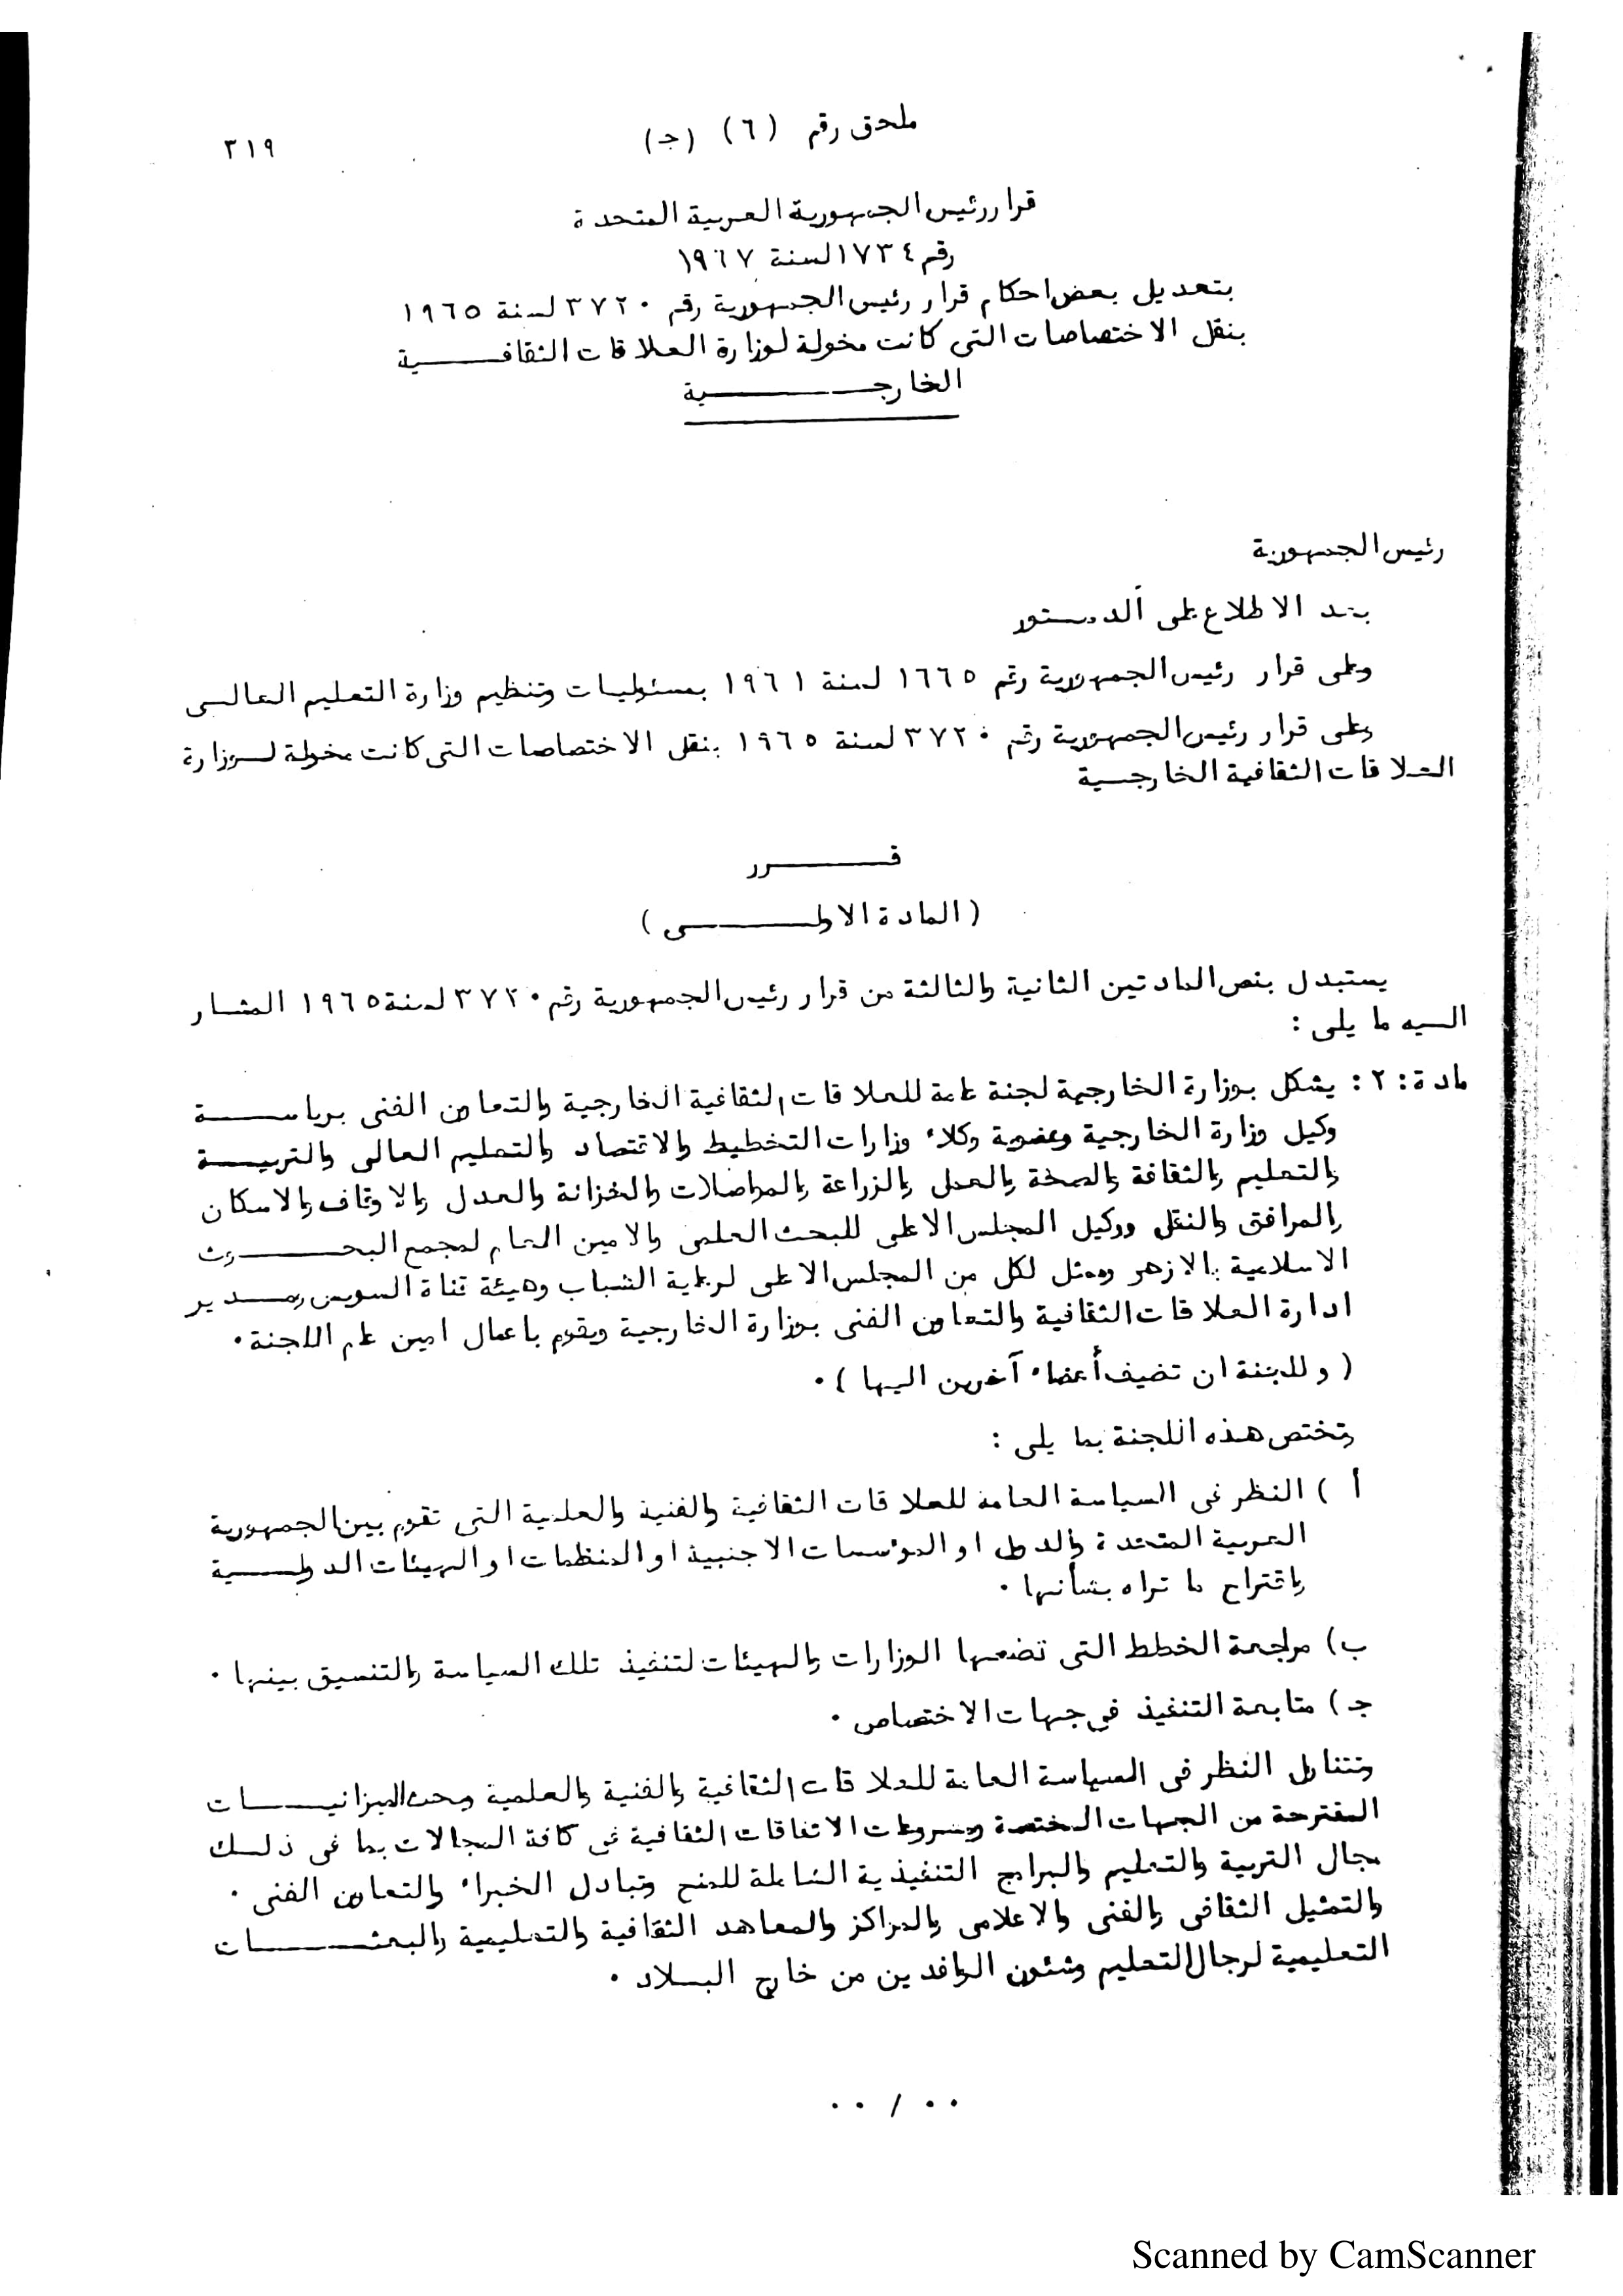 ملحق رقم (٦) (جـ)
٣١٩
قرار رئيس الجمهورية العربية المتحدة
رقم ١٧٣٤ لسنة ١٩٦٧
بتعديل بعض احكام قرار رئيس الجمهورية رقم ٣٧٢٠ لسنة ١٩٦٥
بنقل الاختصاصات التى كانت مخولة لوزارة العلاقات الثقافية
الخارجية
رئيس الجمهورية
بعد الاطلاع على الدستور
وعلى قرار رئيس الجمهورية رقم ١٦٦٥ لسنة ١٩٦١ بمسئوليات وتنظيم وزارة التعليم العالى
وعلى قرار رئيس الجمهورية رقم ٣٧٢٠ لسنة ١٩٦٥ بنقل الاختصاصات التى كانت مخولة لوزارة
العلاقات الثقافية الخارجية
قرر
(المادة الاولى)
يستبدل بنص المادتين الثانية والثالثة من قرار رئيس الجمهورية رقم ٣٧٢٠ لسنة ١٩٦٥ المشار
اليه ما يلى :
مادة : ٢ : يشكل بوزارة الخارجية لجنة عامة للعلاقات الثقافية الخارجية والتعاون الفنى برياسة
وكيل وزارة الخارجية وعضوية وكلاء وزارات التخطيط والاقتصاد والتعليم العالى والتربية
والتعليم والثقافة والصحة والعمل والزراعة والمواصلات والخزانة والعدل والاوقاف والاسكان
والمرافق والنقل ووكيل المجلس الاعلى للبحث العلمى والامين العام لمجمع البحوث
الاسلامية بالازهر وممثل لكل من المجلس الاعلى لرعاية الشباب وهيئة قناة السويس ومدير
ادارة العلاقات الثقافية والتعاون الفنى بوزارة الخارجية ويقوم باعمال امين عام اللجنة .
( وللجنة ان تضيف أعضاء آخرين اليها ) .
وتختص هذه اللجنة بما يلى :
أ ) النظر فى السياسة العامة للعلاقات الثقافية والفنية والعلمية التى تقوم بين الجمهورية
العربية المتحدة والدول او المؤسسات الاجنبية او المنظمات او الهيئات الدولية
واقتراح ما تراه بشأنها .
ب) مراجعة الخطط التى تضعها الوزارات والهيئات لتنفيذ تلك السياسة والتنسيق بينها .
جـ) متابعة التنفيذ فى جهات الاختصاص .
وتتناول النظر فى السياسة العامة للعلاقات الثقافية والفنية والعلمية وبحث الميزانيات
المقترحة من الجهات المختصة ومشروعات الاتفاقات الثقافية فى كافة المجالات بما فى ذلك
مجال التربية والتعليم والبرامج التنفيذية الشاملة للمنح وتبادل الخبراء والتعاون الفنى .
والتمثيل الثقافى والفنى والاعلامى والمراكز والمعاهد الثقافية والتعليمية والبعثات
التعليمية لرجال التعليم وشئون الوافدين من خارج البلاد .
٠٠ / ٠٠
Scanned by CamScanner